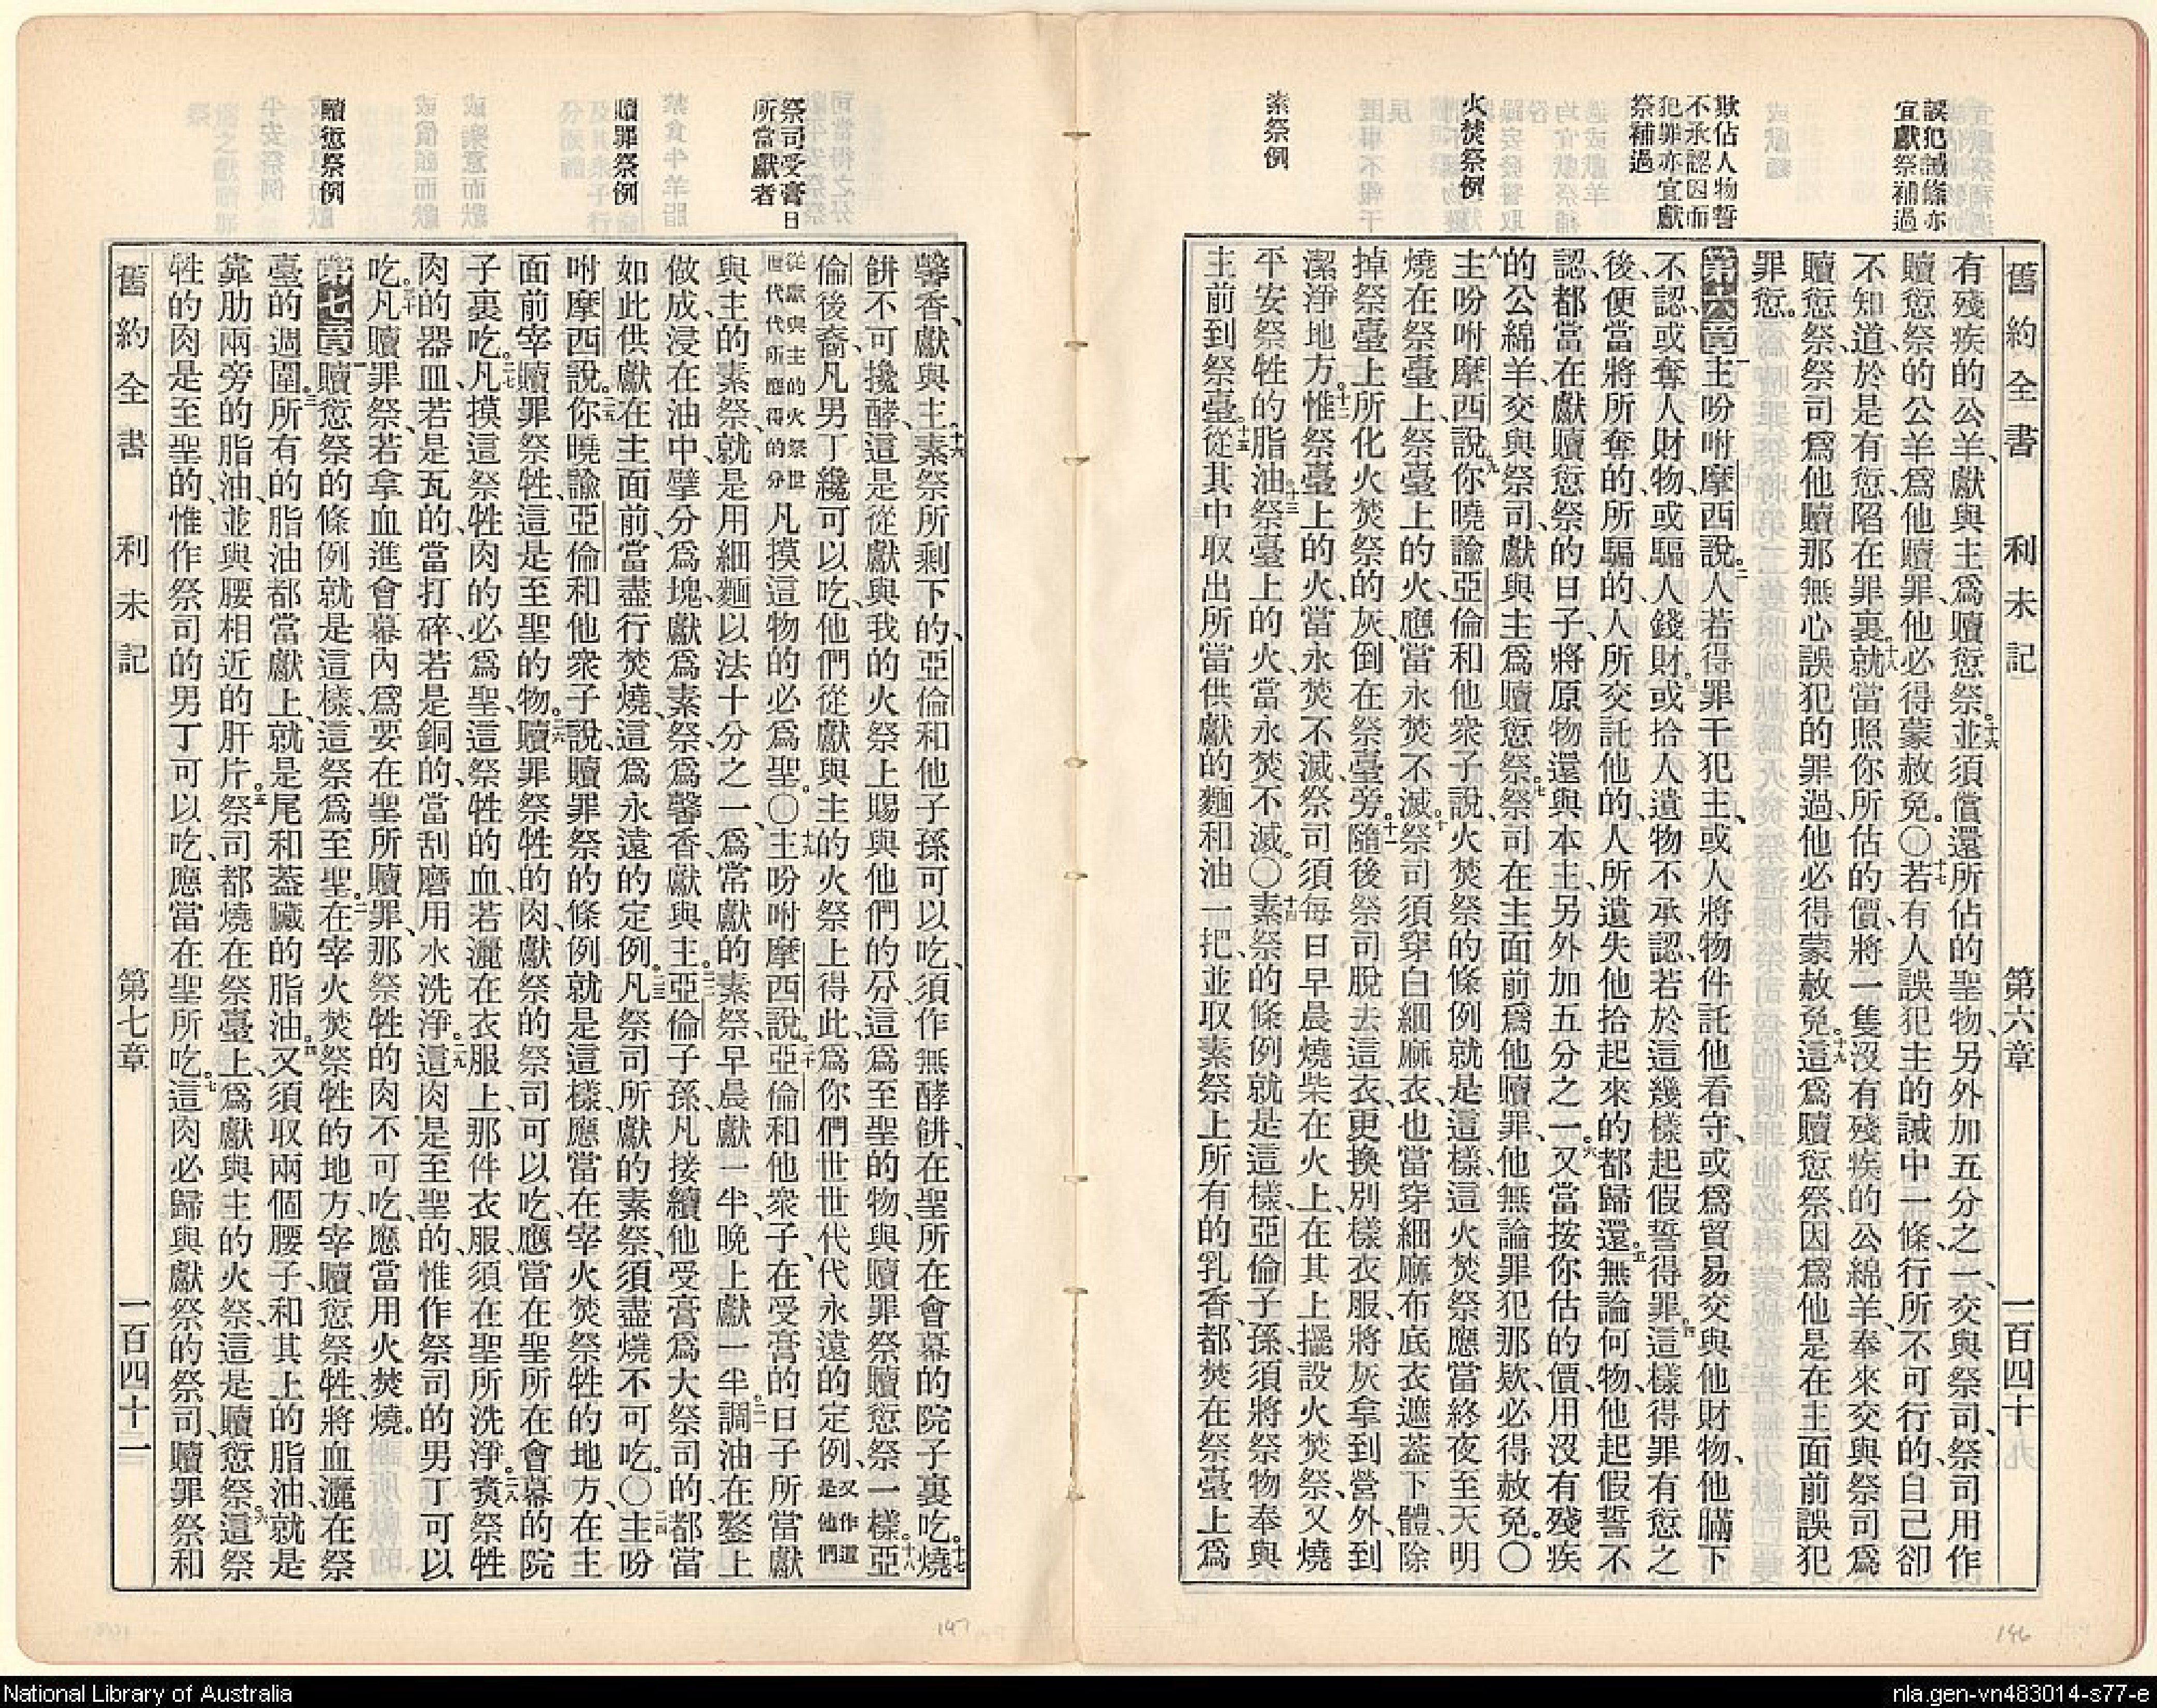 舊約全書　利未記　第六章　一百四十
誤犯誡條亦
宜獻祭補過
欺佔人物誓
不承認因而
犯罪亦宜獻
祭補過
火焚祭例
素祭例
有殘疾的公羊、獻與主、爲贖愆祭。十六並須償還所佔的聖物、另外加五分之一、交與祭司、祭司用作
贖愆祭的公羊、爲他贖罪、他必得蒙赦免。〇十七若有人誤犯主的誡中一條、行所不可行的、自己卻
不知道、於是有愆、陷在罪裏。十八就當照你所估的價、將一隻沒有殘疾的公綿羊、奉來交與祭司爲
贖愆祭、祭司爲他贖那無心誤犯的罪過、他必得蒙赦免。十九這爲贖愆祭、因爲他是在主面前誤犯
罪愆。
第六章 一主吩咐摩西說。二人若得罪干犯主、或人將物件託他看守、或爲貿易交與他財物、他瞞下
不認、或奪人財物、或騙人錢財。三或拾人遺物不承認、若於這幾樣起假誓得罪。四這樣得罪有愆之
後、便當將所奪的、所騙的、人所交託他的、人所遺失他拾起來的、都歸還。五無論何物、他起假誓不
認、都當在獻贖愆祭的日子、將原物還與本主、另外加五分之一。六又當按你估的價、用沒有殘疾
的公綿羊、交與祭司、獻與主爲贖愆祭。七祭司在主面前爲他贖罪、他無論罪犯那款、必得赦免。〇
八主吩咐摩西說、九你曉諭亞倫和他衆子說、火焚祭的條例就是這樣、這火焚祭應當終夜至天明
燒在祭臺上、祭臺上的火、應當永焚不滅。十祭司須穿白細麻衣、也當穿細麻布底衣遮蓋下體、除
掉祭臺上所化火焚祭的灰、倒在祭臺旁。十一隨後祭司脫去這衣、更換別樣衣服、將灰拿到營外、到
潔淨地方。十二惟祭臺上的火、當永焚不滅、祭司須每日早晨燒柴在火上、在其上擺設火焚祭、又燒
平安祭牲的脂油。十三祭臺上的火、當永焚不滅。〇十四素祭的條例就是這樣、亞倫子孫須將祭物奉與
主前到祭臺。十五從其中取出所當供獻的麵和油一把、並取素祭上所有的乳香、都焚在祭臺上爲
祭司受膏日
所當獻者
贖罪祭例
贖愆祭例
馨香、獻與主。十六素祭所剩下的、亞倫和他子孫可以吃、須作無酵餅、在聖所在會幕的院子裏吃。十七燒
餅不可攙酵、這是從獻與我的火祭上賜與他們的分、這爲至聖的物、與贖罪祭贖愆祭一樣。十八亞
倫後裔、凡男丁纔可以吃、他們從獻與主的火祭上得此、爲你們世世代代永遠的定例、又作這是他們
從獻與主的火祭世世代代所應得的分凡摸這物的必爲聖。〇十九主吩咐摩西說。二十亞倫和他衆子、在受膏的日子所當獻
與主的素祭、就是用細麵以法十分之一、爲常獻的素祭、早晨獻一半、晚上獻一半。二一調油在鏊上
做成、浸在油中、擘分爲塊、獻爲素祭、爲馨香獻與主。二二亞倫子孫凡接續他受膏爲大祭司的、都當
如此供獻在主面前、當盡行焚燒、這爲永遠的定例。二三凡祭司所獻的素祭、須盡燒不可吃。〇二四主吩
咐摩西說。二五你曉諭亞倫和他衆子說、贖罪祭的條例就是這樣、應當在宰火焚祭牲的地方、在主
面前宰贖罪祭牲、這是至聖的物。二六贖罪祭牲的肉、獻祭的祭司可以吃、應當在聖所在會幕的院
子裏吃。二七凡摸這祭牲肉的必爲聖、這祭牲的血、若灑在衣服上、那件衣服、須在聖所洗淨。二八煑祭牲
肉的器皿、若是瓦的、當打碎、若是銅的、當刮磨用水洗淨。二九這肉是至聖的、惟作祭司的男丁可以
吃。三十凡贖罪祭、若拿血進會幕內、爲要在聖所贖罪、那祭牲的肉不可吃、應當用火焚燒。
第七章 一贖愆祭的條例就是這樣、這祭爲至聖。二在宰火焚祭牲的地方、宰贖愆祭牲、將血灑在祭
臺的週圍。三所有的脂油都當獻上、就是尾和蓋臟的脂油。四又須取兩個腰子、和其上的脂油、就是
靠肋兩旁的脂油、並與腰相近的肝片。五祭司都燒在祭臺上、爲獻與主的火祭、這是贖愆祭。六這祭
牲的肉是至聖的、惟作祭司的男丁可以吃、應當在聖所吃。七這肉必歸與獻祭的祭司、贖罪祭和
舊約全書　利未記　第七章　一百四十一
147
146
National Library of Australia
nla.gen-vn483014-s77-e